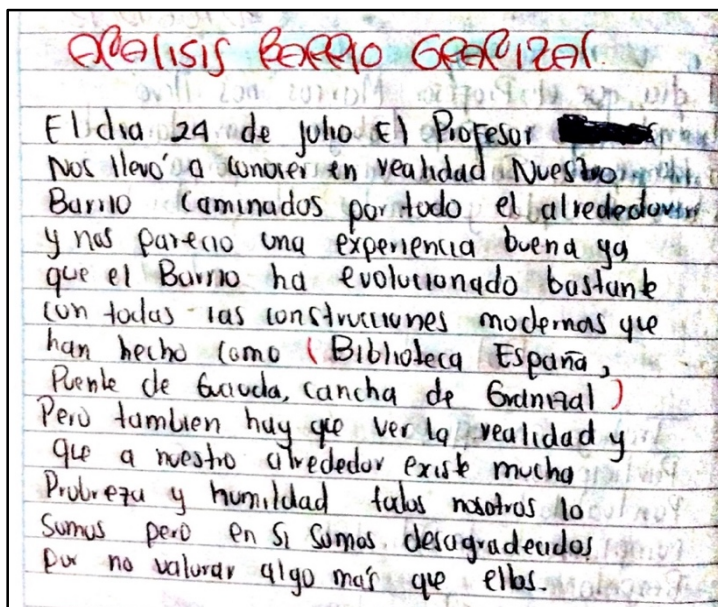 ANALISIS BARRIO GRANIZAL.
El dia 24 de julio El Profesor
Nos llevó a conocer en realidad Nuestro
Barrio Caminados por todo el alrededor
y nos parecio una experiencia buena ya
que el Barrio ha evolucionado bastante
con todas las construcciones modernas que
han hecho como (Biblioteca España,
Puente de Guauda, cancha de Granizal)
Pero tambien hay que ver la realidad y
que a nuestro alrededor existe mucha
Probreza y humildad todos nosotros lo
Somos pero en si somos desagradecidos
por no valorar algo más que ellos.